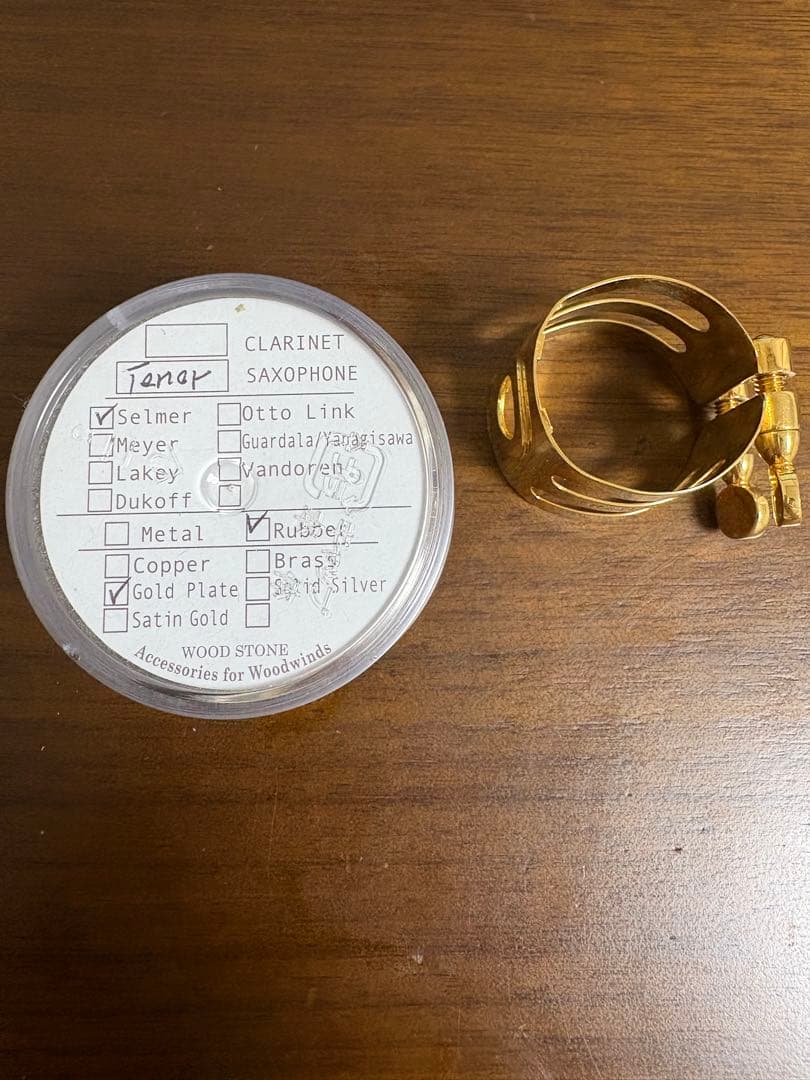 CLARINET
Tenor SAXOPHONE
Selmer Otto Link
Meyer Guardala/Yanagisawa
Lakey Vandoren
Dukoff
Metal Rubber
Copper Brass
Gold Plate Solid Silver
Satin Gold
WOOD STONE
Accessories for Woodwinds